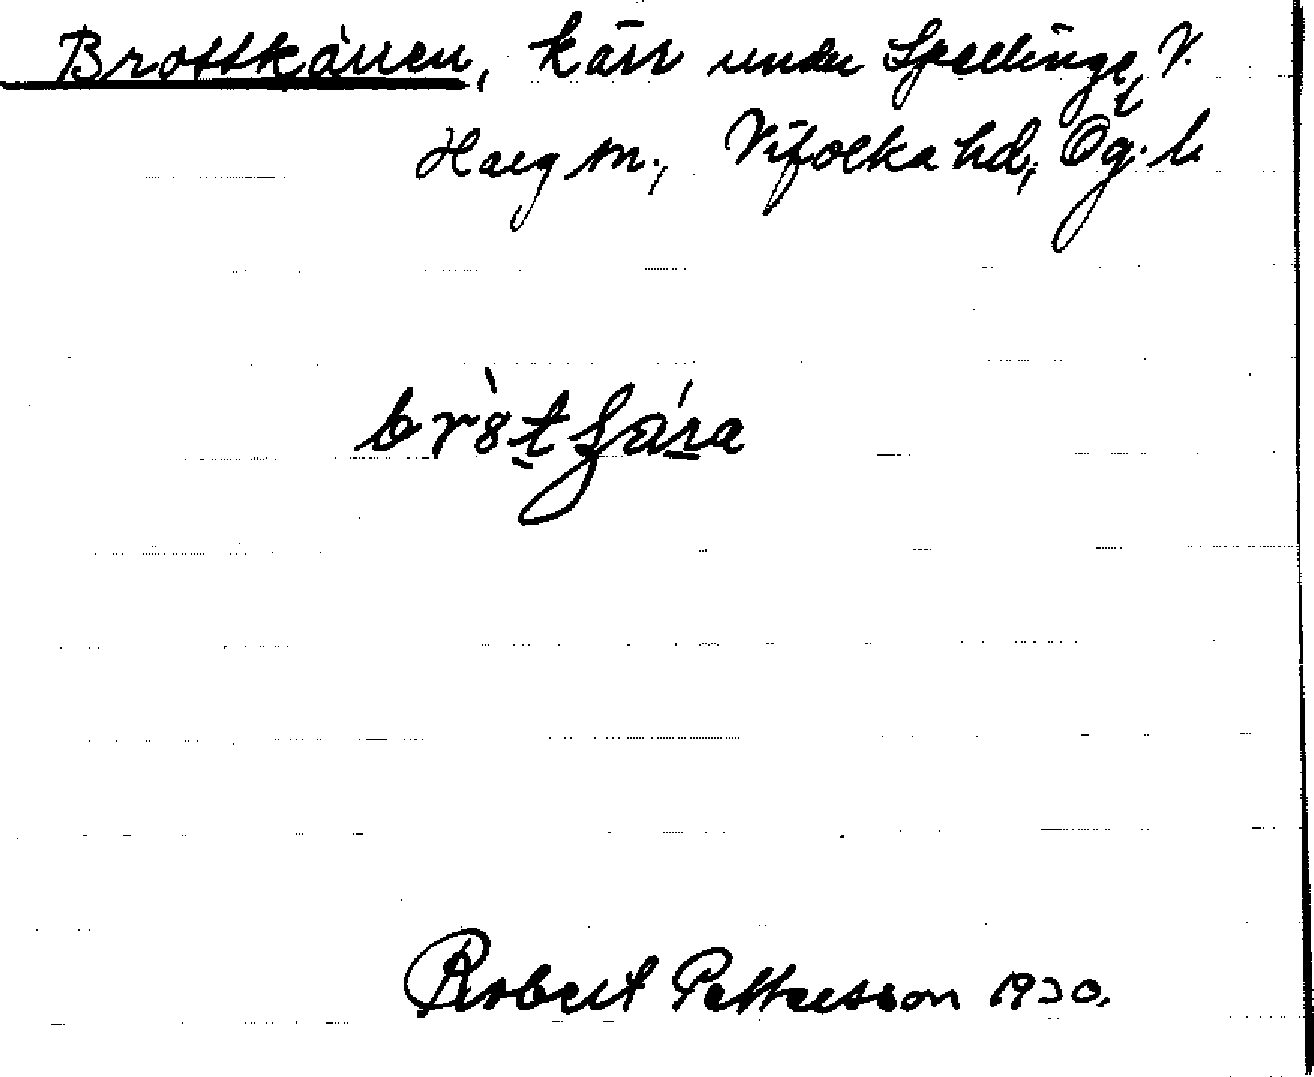 Brottkärren, kärr under Spellinge, V.
Harg sn., Vifolka hd, Ög. l.
Robert Pettersson 1930.